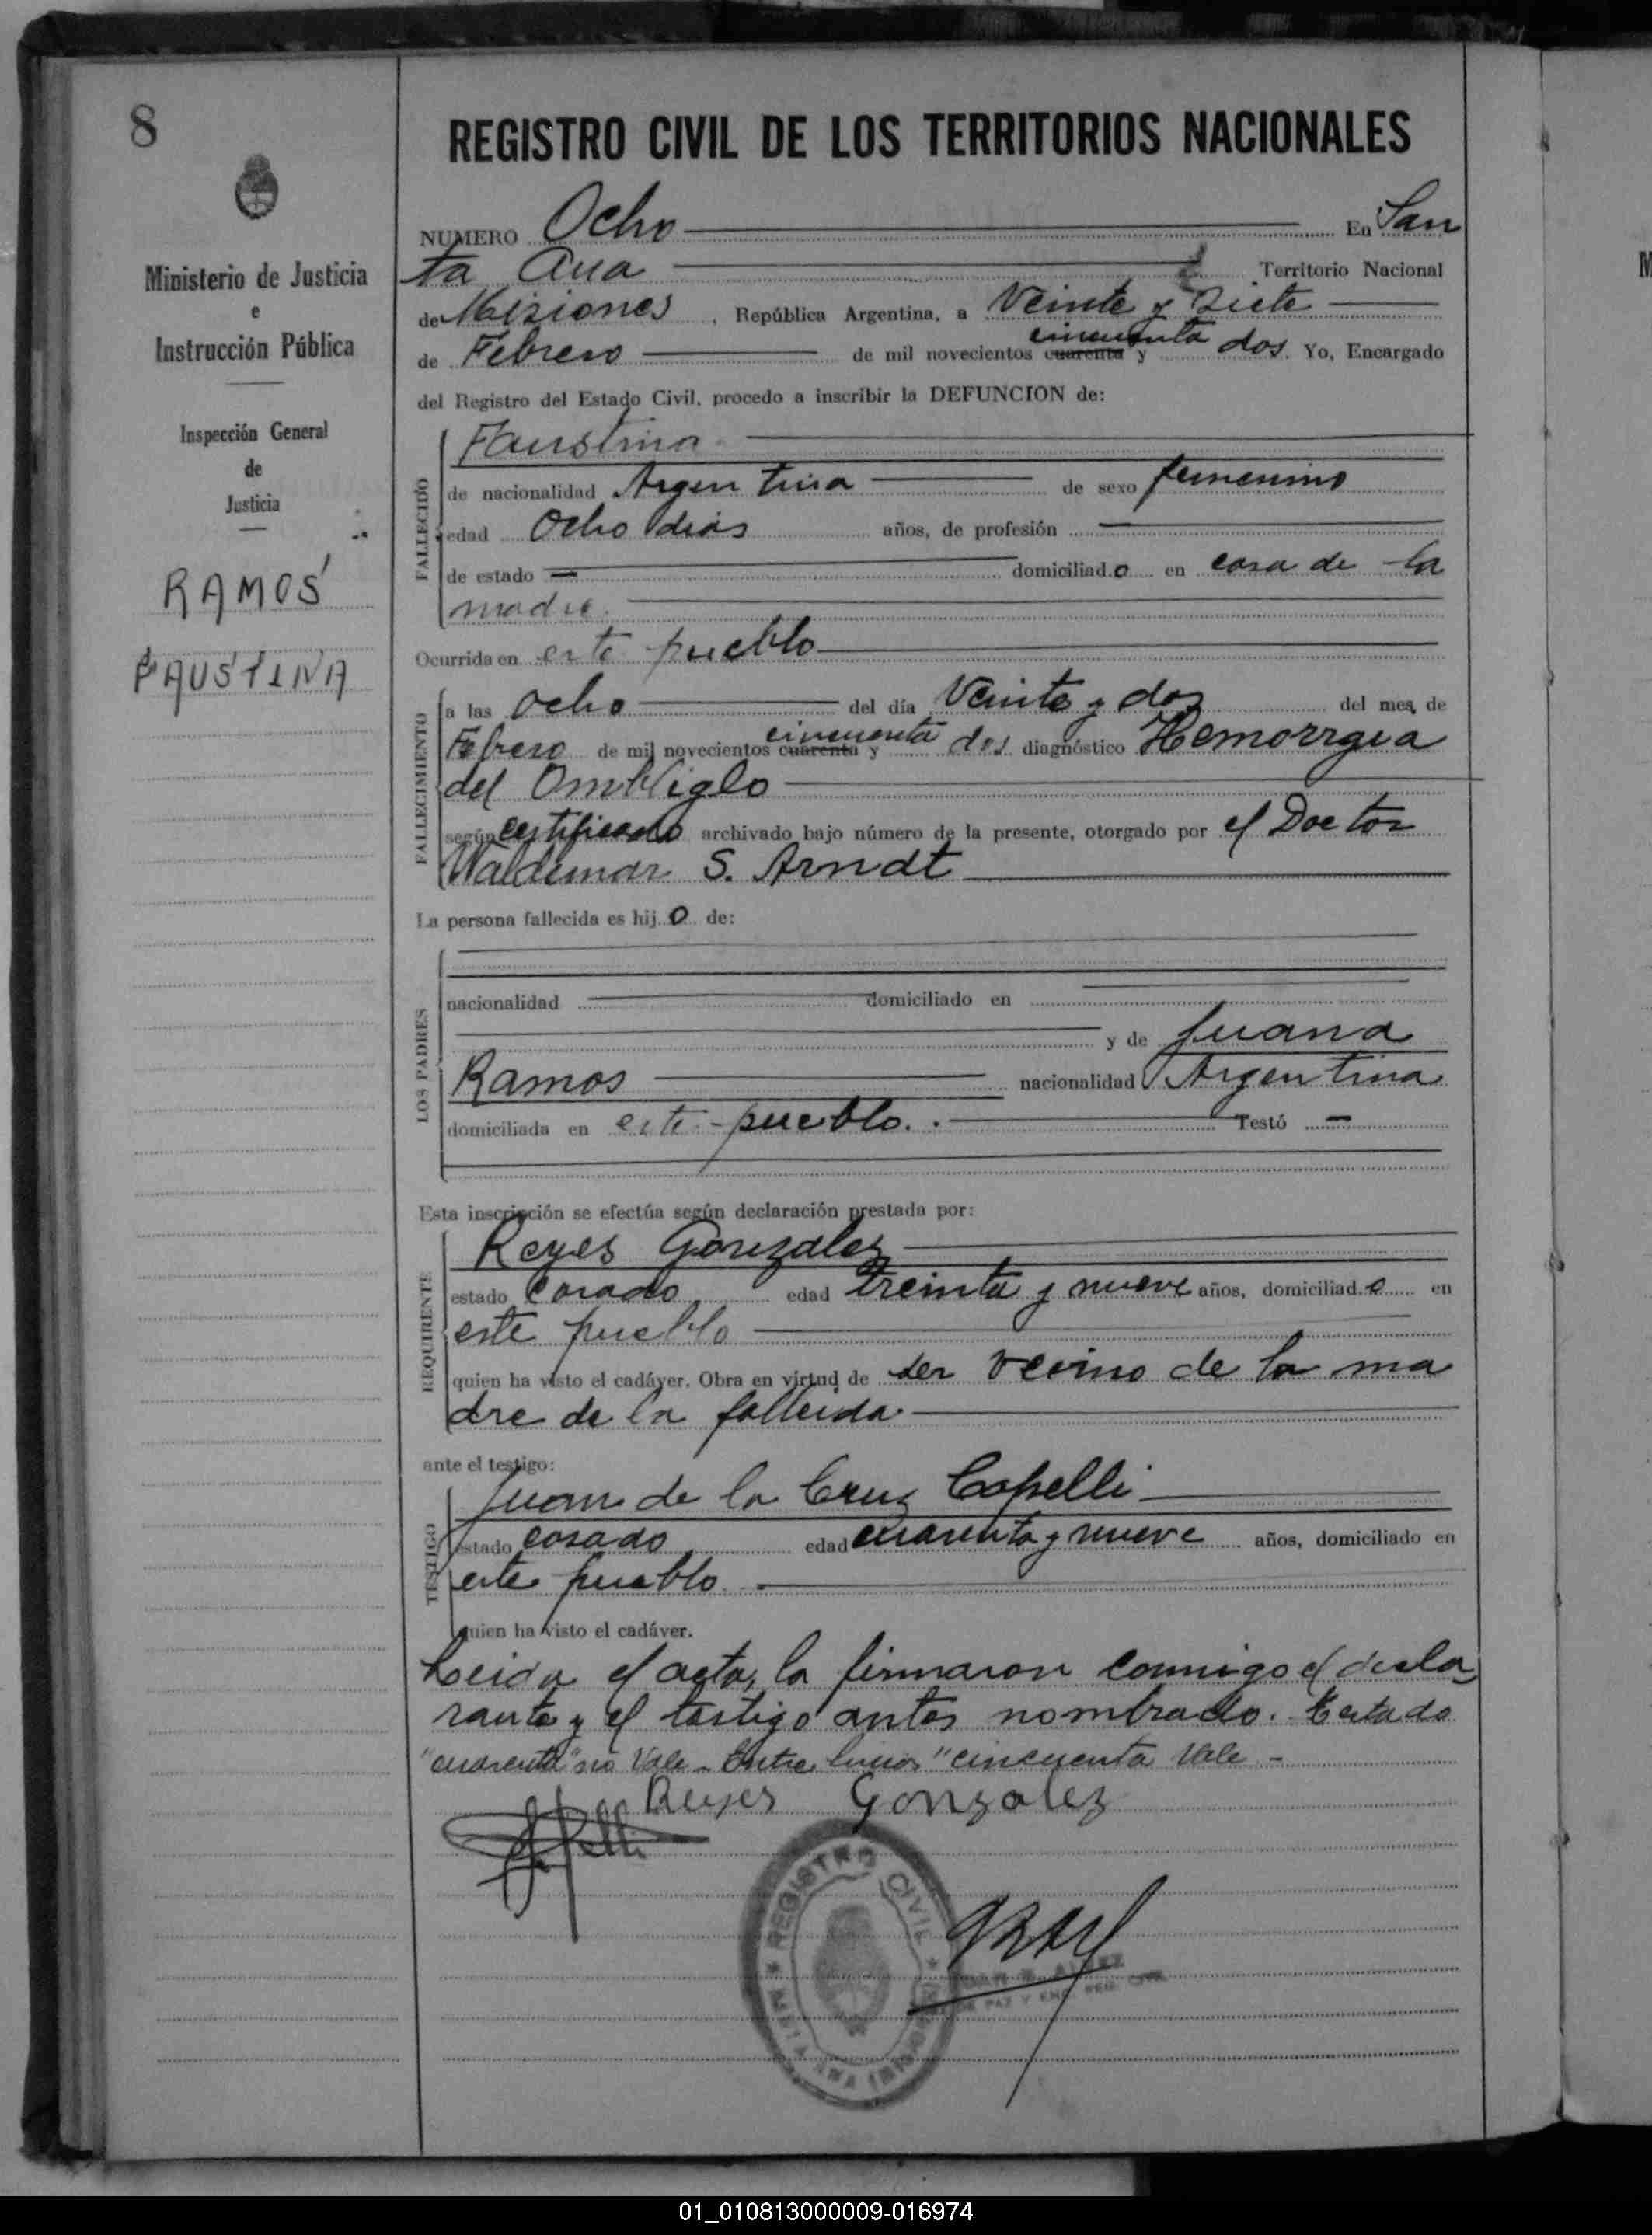 8
Ministerio de Justicia
e
Instrucción Pública
Inspección General
de
Justicia
RAMOS
FAUSTINA
REGISTRO CIVIL DE LOS TERRITORIOS NACIONALES
NUMERO Ocho En San
ta Ana Territorio Nacional
de Misiones, República Argentina, a Veinte y Siete
de Febrero de mil novecientos cuarenta y cincuenta dos Yo, Encargado
del Registro del Estado Civil, procedo a inscribir la DEFUNCION de:
FALLECIDO
Faustina
de nacionalidad Argentina de sexo femenino
edad Ocho dias años, de profesión
de estado domiciliado en casa de la
madre.
Ocurrida en este pueblo
FALLECIMIENTO
a las ocho del día Veinte y dos del mes de
Febrero de mil novecientos cuarenta y cincuenta dos diagnóstico Hemorrgia
del Ombliglo
según certificado archivado bajo número de la presente, otorgado por el Doctor
Waldemar S. Arndt
La persona fallecida es hijo de:
LOS PADRES
nacionalidad domiciliado en
y de Juana
Ramos nacionalidad Argentina
domiciliada en este pueblo. Testó
Esta inscripción se efectúa según declaración prestada por:
REQUIRENTE
Reyes Gonzalez
estado Casado edad treinta y nueve años, domiciliado en
este pueblo
quien ha visto el cadáver. Obra en virtud de ser vecino de la ma
dre de la fallecida
ante el testigo:
TESTIGO
Juan de la Cruz Capelli
estado casado edad cuarenta y nueve años, domiciliado en
este pueblo
quien ha visto el cadáver.
Leida el acta, la firmaron conmigo el decla
rante y el testigo antes nombrado. Testado
"cuarenta" no Vale - Entre lineas "cincuenta Vale -
Reyes Gonzalez
REGISTRO CIVIL
01_010813000009-016974